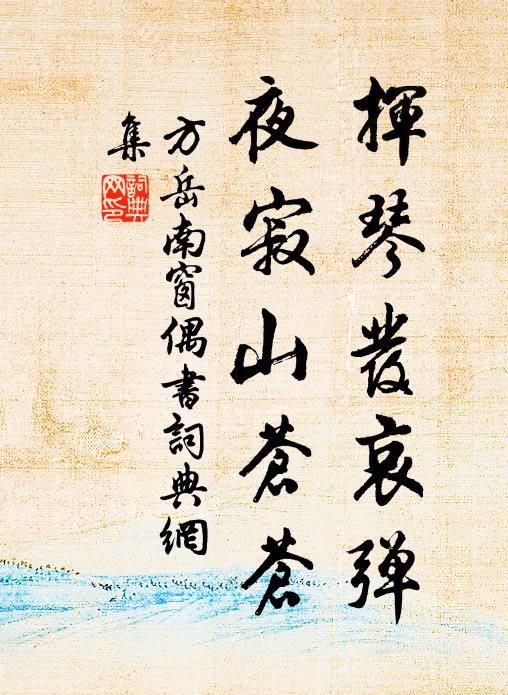 揮琴發哀弹
夜寂山蒼蒼
方岳南窗偶書詞典網
集
詞典
网印